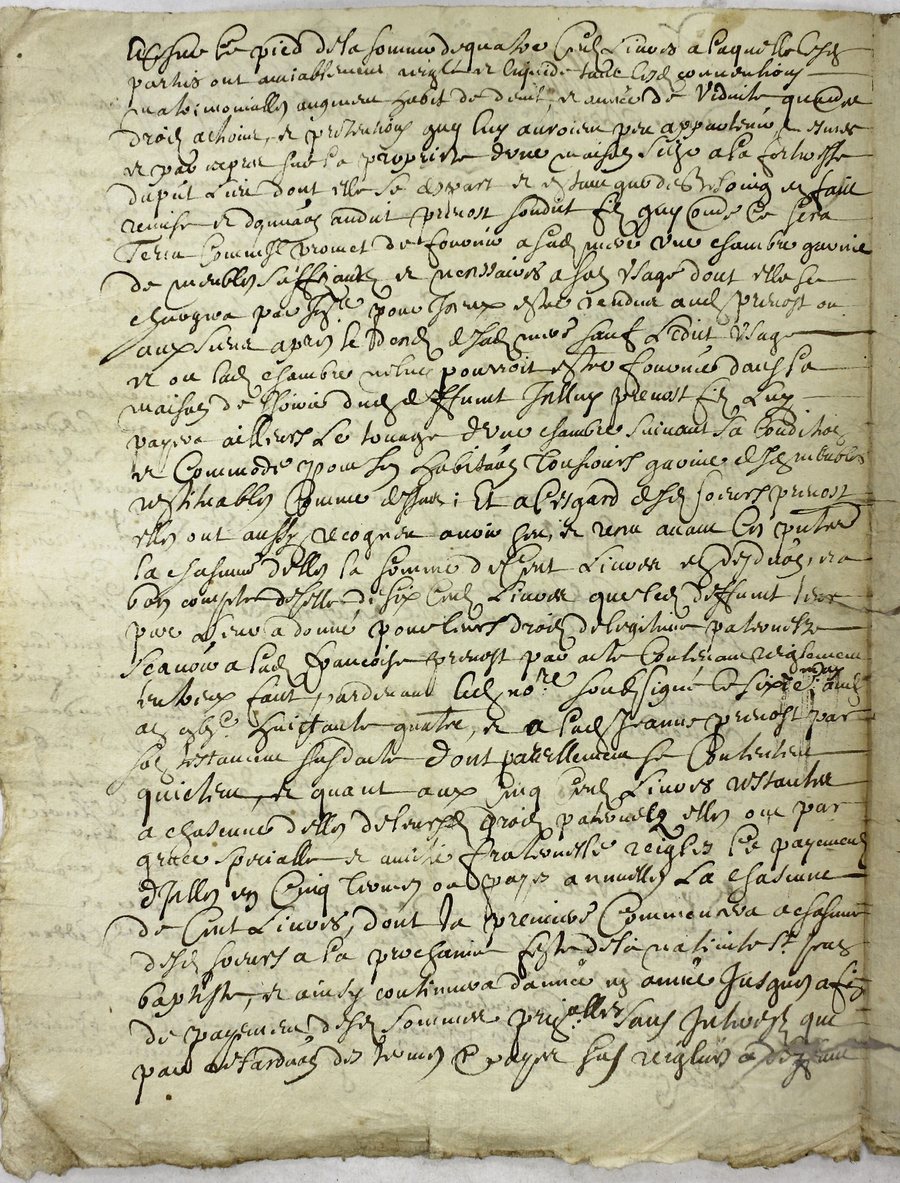 sur le pied de la somme de quatre Cent Livres a laquelle lesd
parties ont amiablement reiglé et liquide tant lesd conventions
matrimonialles augment habit de deuil, et année de viduite quaultre
droict actions, et pretentions quy luy auroient peu appartenir
et par expres sur la propriete d'une maison size a la
du puis dont elle se depart et en faict
remise et aud prevost sondit filz quy comme ce sera
promet de fournir a sad mere une chambre garnie
de meubles suffisants et necessaires a son usage dont elle se
chargera par pour Iceux estre rendus aud prevost ou
aux siens apres le deces desad mere sauf Ledit usage
et ou lad chambre ne luy pourroit estre fournie dans la
maison de dud deffunt Icelluy prevost filz luy
payera ailleurs le louage d'une chambre suivant sa condition
et Commode pour son habitation tousiours garnie desd meubles
restituables Comme dessus : Et a l'esgard desd soeurs prevost
elles ont aussy recogneu avoir heu, et receu avant Ces presentes
la chascune d'elles la somme de Cent Livres en desduction, et a
bon compte de celle de six Cent Livres que led deffunt leur
pere Leur a donné pour leurs droict de legitime paternelle
Scavoir a lad francoise prevost par acte Contenant reiglement
entreux faict pardevant led no.re soubsigné le sixie.
huictante quatre, et a lad Jeanne prevost par
son testament susdacte dont pareillement se Contentent
quictent, et quant aux Cinq Cent Livres restantes
a chascune d'elles de leursd droict paternelz elles ont par
grace specialle et amitié fraternelle reiglés le payement
d'Icelles en Cinq termes ou payes annuelles La chascune
de Cent Livres, dont la premiere Commencera a chascune
desd soeurs a la prochaine feste de la nativite S.t Jean
baptiste, et ainsy continuera d'année en année Jusques a fin
de payement desd sommes prin.alles sans Interestz que
par retardation des termes a payer sus reiglés a